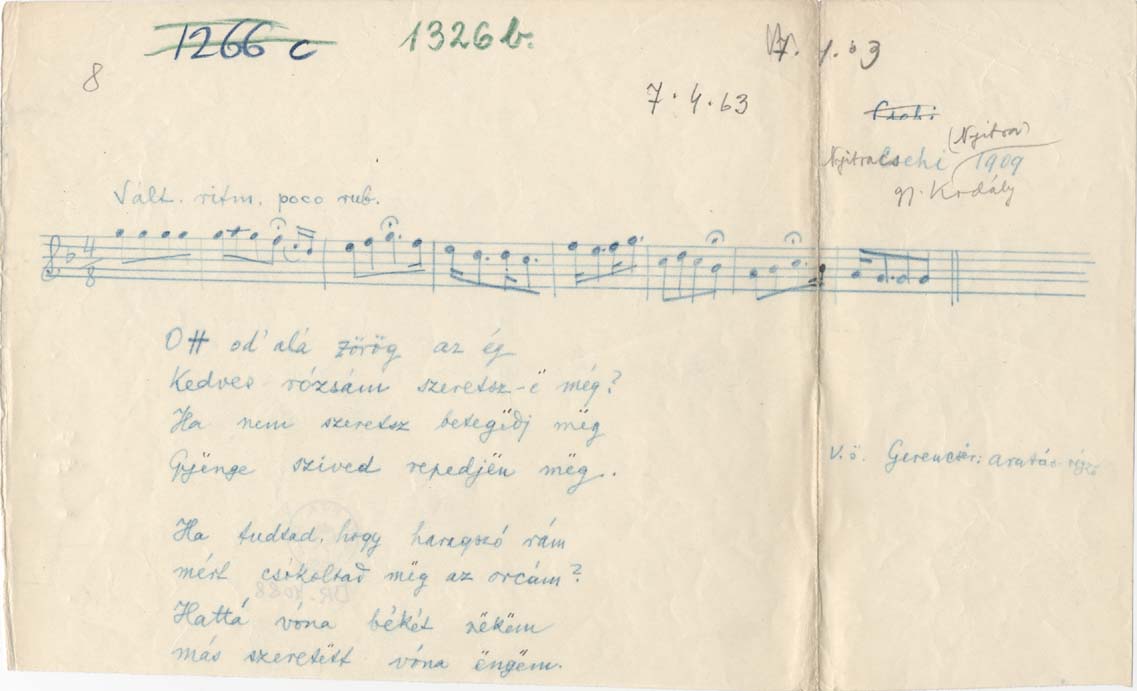 1266 c
1326 b.
7.4.63
8
7.4.63
Csehi
(Nyitra)
Nyitracsehi 1909
gy. Kodály
Vált. ritm. poco rub.
4/8
Ott od'alá zörög az ég
Kedves rózsám szeretsz-ë még?
Ha nem szeretsz betegëdj mëg
Gyënge szived repedjën mëg.
v.ö. Gerencsér: aratás
Ha tudtad, hogy haragszó rám
mért csókoltad mëg az orcám?
Hattá vóna békét nëkëm
más szeretëtt vóna ëngëm.